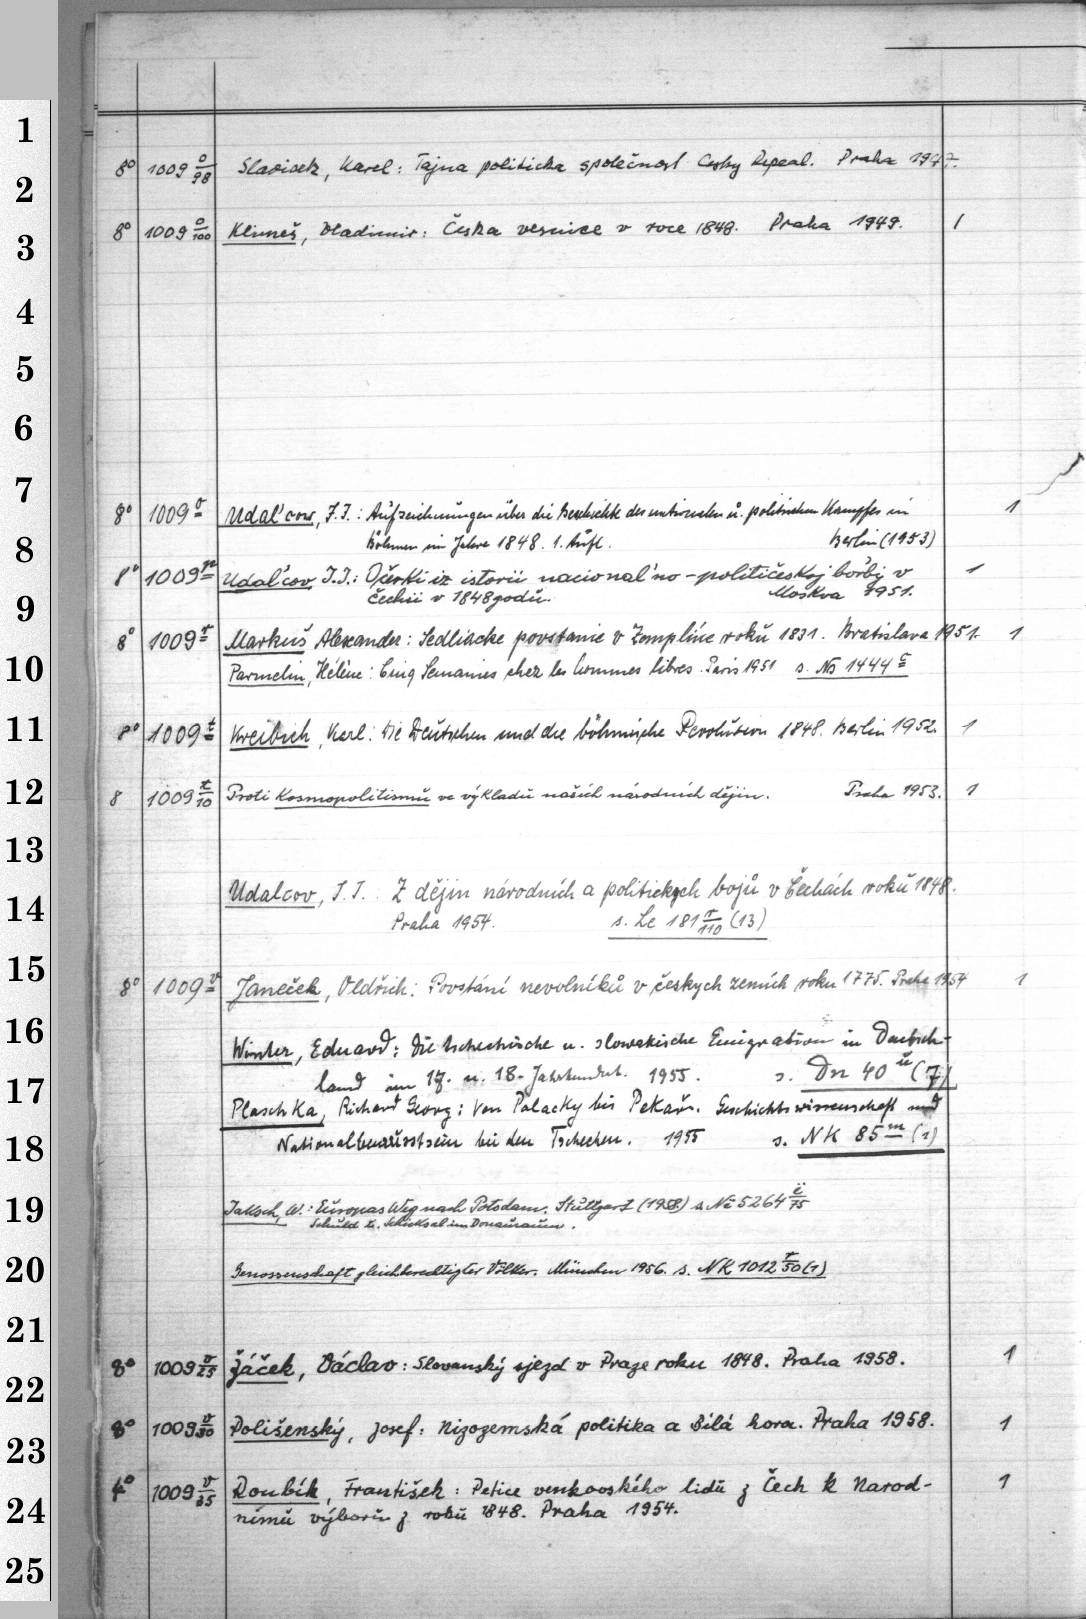 1
8° 1009 o/98 Slavicek, Karel: Tajna politicka společnost Cesky Repeal. Praha 1947.
2
8° 1009 o/100 Klimeš, Vladimir: Česka vesnice v roce 1848. Praha 1949. 1
3
4
5
6
7
8° 1009 v Udal'cow, I.I.: Aufzeichnungen über die Geschichte des nationalen u. politischen Kampfes in 1
Böhmen im Jahre 1848. 1. Aufl. Berlin (1953)
8
8° 1009 p Udal'cov I.I.: Očerki iz istorii nacional'no-političeskoj bor'bj v 1
Čechii v 1848 godu. Moskva 1951.
9
8° 1009 r Markuš Alexander: Sedliacke povstanie v Zemplíne roku 1831. Bratislava 1951. 1
10
Parmelin, Hélène: Cinq Semaines chez les hommes libres. Paris 1951 s. No 1444 c
11
8° 1009 t Kreibich, Karl: Die Deutschen und die böhmische Revolution 1848. Berlin 1952. 1
12
8 1009 t/10 Proti Kosmopolitismu ve výkladu našich národních dějin. Praha 1953. 1
13
14
Udalcov, I.I. Z dějin národních a politickych bojů v Čechách roku 1848.
Praha 1954. s. Le 181 r/110 (13)
15
8° 1009 v Janeček, Oldřich: Povstání nevolníků v českych zemích roku 1775. Praha 1954 1
16
Winter, Eduard: Die tschechische u. slowakische Emigration in Deutsch-
17
land im 17. u. 18. Jahrhundert. 1955. s. Dn 40 ü (7)
Plaschka, Richard Georg: Von Palacky bis Pekař. Geschichtswissenschaft und
18
Nationalbewusstsein bei den Tschechen. 1955 s. NK 85 m (1)
19
Jaksch, W.: Europas Weg nach Potsdam. Stuttgart (1958) s. Ne 5264 i/75
Schuld u. Schicksal im Donauraum.
20
Genossenschaft gleichberechtigter Völker. München 1956. s. NK 1012 r/50 (1)
21
8° 1009 v/25 Žáček, Václav: Slovanský sjezd v Praze roku 1848. Praha 1958. 1
22
8° 1009 v/30 Polišenský, Josef: Nizozemská politika a Bílá hora. Praha 1958. 1
23
4° 1009 v/35 Roubík, František: Petice venkovského lidu z Čech k Narod- 1
24
nímu výboru z roku 1848. Praha 1954.
25